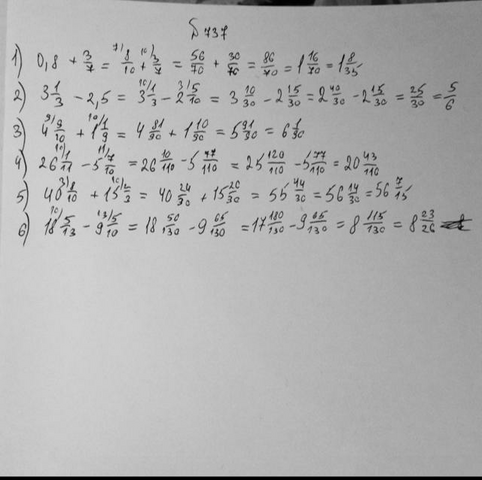 № 737
1) 0,8 + 3/7 = 7/ 8/10 + 10/ 3/7 = 56/70 + 30/70 = 86/70 = 1 16/70 = 1 8/35
2) 3 1/3 - 2,5 = 3 10/ 1/3 - 2 3/ 5/10 = 3 10/30 - 2 15/30 = 2 40/30 - 2 15/30 = 25/30 = 5/6
3) 4 9/ 9/10 + 1 10/ 1/9 = 4 81/90 + 1 10/90 = 5 91/90 = 6 1/90
4) 26 10/ 1/11 - 5 11/ 7/10 = 26 10/110 - 5 77/110 = 25 120/110 - 5 77/110 = 20 43/110
5) 40 3/ 8/10 + 15 10/ 2/3 = 40 24/30 + 15 20/30 = 55 44/30 = 56 14/30 = 56 7/15
6) 18 10/ 5/13 - 9 13/ 5/10 = 18 50/130 - 9 65/130 = 17 180/130 - 9 65/130 = 8 115/130 = 8 23/26